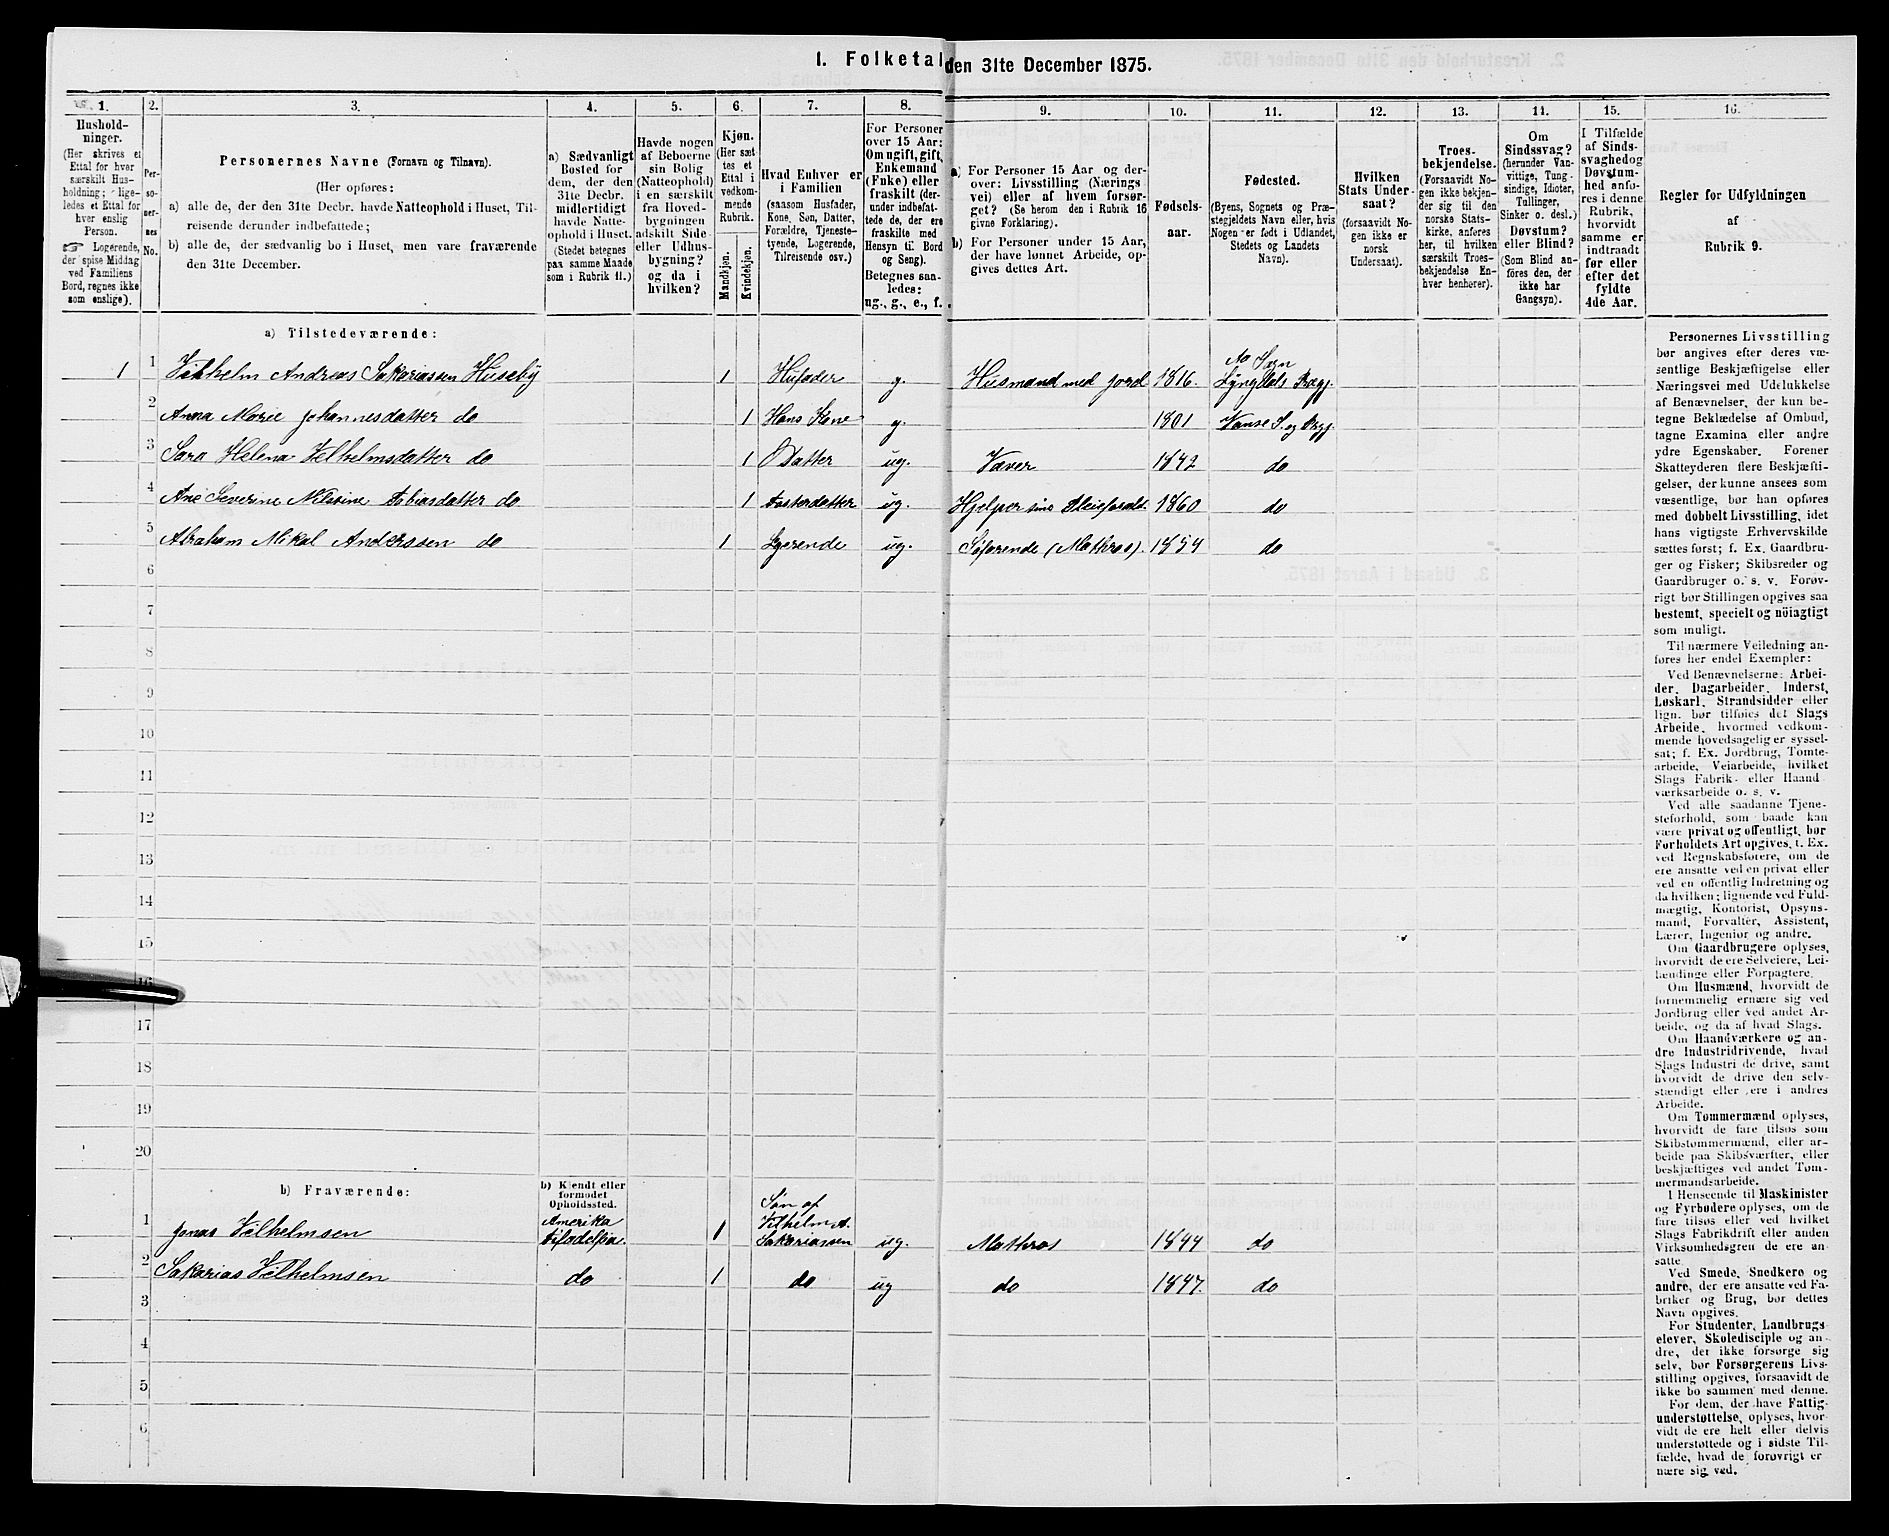 I. Folketal den 31te December 1875.
1. 2. 3. 4. 5. 6. 7. 8. 9. 10. 11. 12. 13. 14. 15. 16.
Hushold-
ninger.
(Her skrives et
Ettal for hver
særskilt Hus-
holdning; lige-
ledes et Ettal for
hver enslig
Person.
☞ Logerende,
der spise Middag
ved Familiens
Bord, regnes ikke
som enslige).
Per-
so-
ner-
nes
No.
Personernes Navne (Fornavn og Tilnavn).
(Her opføres:
a) alle de, der den 31te Decbr. havde Natteophold i Huset, Til-
reisende derunder indbefattede;
b) alle de, der sædvanlig bo i Huset, men vare fraværende
den 31te December.
a) Sædvanligt
Bosted for
dem, der den
31te Decbr.
midlertidigt
havde Natte-
ophold i Huset.
(Stedet betegnes
paa samme Maade
som i Rubrik 11.)
Havde nogen
af Beboerne
sin Bolig
(Natteophold)
i en særskilt
fra Hoved-
bygningen
adskilt Side-
eller Udhus-
bygning?
og da i
hvilken?
Kjøn.
(Her sæt-
tes et
Ettal i
vedkom-
mende
Rubrik.
Mandkjøn.
Kvindekjøn.
Hvad Enhver er
i Familien
(saasom Husfader,
Kone, Søn, Datter,
Forældre, Tjeneste-
tyende, Logerende,
Tilreisende osv.)
For Personer
over 15 Aar:
Om ugift, gift,
Enkemand
(Enke) eller
fraskilt (der-
under indbefat-
tede de, der ere
fraskilte med
Hensyn til Bord
og Seng).
Betegnes saa-
ledes:
ug., g., e., f.
a) For Personer 15 Aar og der-
over: Livsstilling (Nærings-
vei) eller af hvem forsør-
get? (Se herom den i Rubrik 16
givne Forklaring).
b) For Personer under 15 Aar,
der have lønnet Arbeide, op-
gives dettes Art.
Fødsels-
aar.
Fødested.
(Byens, Sognets og Præ-
stegjeldets Navn eller, hvis
Nogen er født i Udlandet,
Stedets og Landets
Navn).
Hvilken
Stats Under-
saat?
(forsaavidt No-
gen ikke er
norsk
Undersaat).
Troes-
bekjendelse.
(Forsaavidt No-
gen ikke bekjen-
der sig til den
norske Stats-
kirke, anføres
her, til hvilken
særskilt Troes-
bekjendelse En-
hver henhører).
Om
Sindssvag?
(herunder Van-
vittige, Tung-
sindige, Idioter,
Tullinger,
Sinker o. desl.)
Døvstum?
eller Blind?
(Som Blind an-
føres den, der
ikke har
Gangsyn).
I Tilfælde
af Sinds-
svaghed og
Døvstum-
hed anfø-
res i denne
Rubrik,
hvorvidt
samme er
indtraadt
før eller
efter det
fyldte
4de Aar.
Regler for Udfyldningen
af
Rubrik 9.
a) Tilstedeværende:
1 1 Vilhelm Andreas Sakariassen Huseby 1 Husfader g. Husmand med jord 1816. Ao Sogn Lyngdals Prægj.
2 Anna Marie Johannesdatter do 1 Hans Kone g. 1801 Vanse S. og Prgj.
3 Sara Helena Velhelmsdatter do 1 Datter ug. Væver 1842 do
4 Ane Severine Nilsine Tobiasdatter do 1 Fosterdatter ug. Hjelper sine Pleieforæld. 1860 do
5 Abraham Mikal Anderssen do 1 Logerende ug. Søfarende (Mathros). 1854 do
6
7
8
9
10
11
12
13
14
15
16
17
18
19
20
b) Fraværende:
b) Kjendt eller
formodet
Opholdssted.
1 Jonas Velhelmsen Amerika Filadelfia. 1 Søn af Vilhelm A. Sakariassen ug. Mathros 1844 do
2 Sakarias Velhelmsen do 1 do ug do 1847. do
3
4
5
6
Personernes Livsstilling
bør angives efter deres væ-
sentlige Beskjæftigelse eller
Næringsvei med Udelukkelse
af Benævnelser, der kun be-
tegne Beklædelse af Ombud,
tagne Examina eller andre
ydre Egenskaber. Forener
Skatteyderen flere Beskjæfti-
gelser, der kunne ansees som
væsentlige, bør han opføres
med dobbelt Livsstilling, idet
hans vigtigste Erhvervskilde
sættes først; f. Ex. Gaardbru-
ger og Fisker; Skibsreder og
Gaardbruger o. s. v. Forøv-
rigt bør Stillingen opgives saa
bestemt, specielt og nöiagtigt
som muligt.
Til nærmere Veiledning an-
føres her endel Exempler:
Ved Benævnelserne: Arbei-
der, Dagarbeider, Inderst,
Løskarl, Strandsidder eller
lign. bør tilføies det Slags
Arbeide, hvormed vedkom-
mende hovedsagelig er syssel-
sat; f. Ex. Jordbrug, Tomte-
arbeide, Veiarbeide, hvilket
Slags Fabrik- eller Haand-
værksarbeide o. s. v.
Ved alle saadanne Tjene-
steforhold, som baade kan
være privat og offentligt, bør
Forholdets Art opgives, t. Ex.
ved Regnskabsførere, om de
ere ansatte ved en privat eller
ved en offentlig Indretning og
da hvilken; lignende ved Fuld-
mægtig, Kontorist, Opsyns-
mand, Forvalter, Assistent,
Lærer, Ingeniør og andre.
Om Gaardbrugere oplyses,
hvorvidt de ere Selveiere, Lei-
lændinge eller Forpagtere.
Om Husmænd, hvorvidt de
fornemmelig ernære sig ved
Jordbrug eller ved andet Ar-
beide, og da af hvad Slags.
Om Haandværkere og an-
dre Industridrivende, hvad
Slags Industri de drive, samt
hvorvidt de drive den selv-
stændigt eller ere i andres
Arbeide.
Om Tømmermænd oplyses,
hvorvidt de fare tilsøs som
Skibstømmermænd, eller ar-
beide paa Skibsværfter, eller
beskjæftiges ved andet Tøm-
mermandsarbeide.
I Henseende til Maskinister
og Fyrbødere oplyses, om de
fare tilsøs eller ved hvilket
Slags Fabrikdrift eller anden
Virksomhedsgren de ere an-
satte.
Ved Smede, Snedkere og
andre, der ere ansatte ved Fa-
briker og Brug, bør dettes
Navn opgives.
For Studenter, Landbrugs-
elever, Skoledisciple og an-
dre, der ikke forsørge sig
selv, bør Forsørgerens Livs-
stilling opgives, forsaavidt de
ikke bo sammen med denne.
For dem, der have Fattig-
understøttelse, oplyses, hvor-
vidt de ere helt eller delvis
understøttede og i sidste Til-
fælde, hvad de forøvrigt er-
nære sig ved.